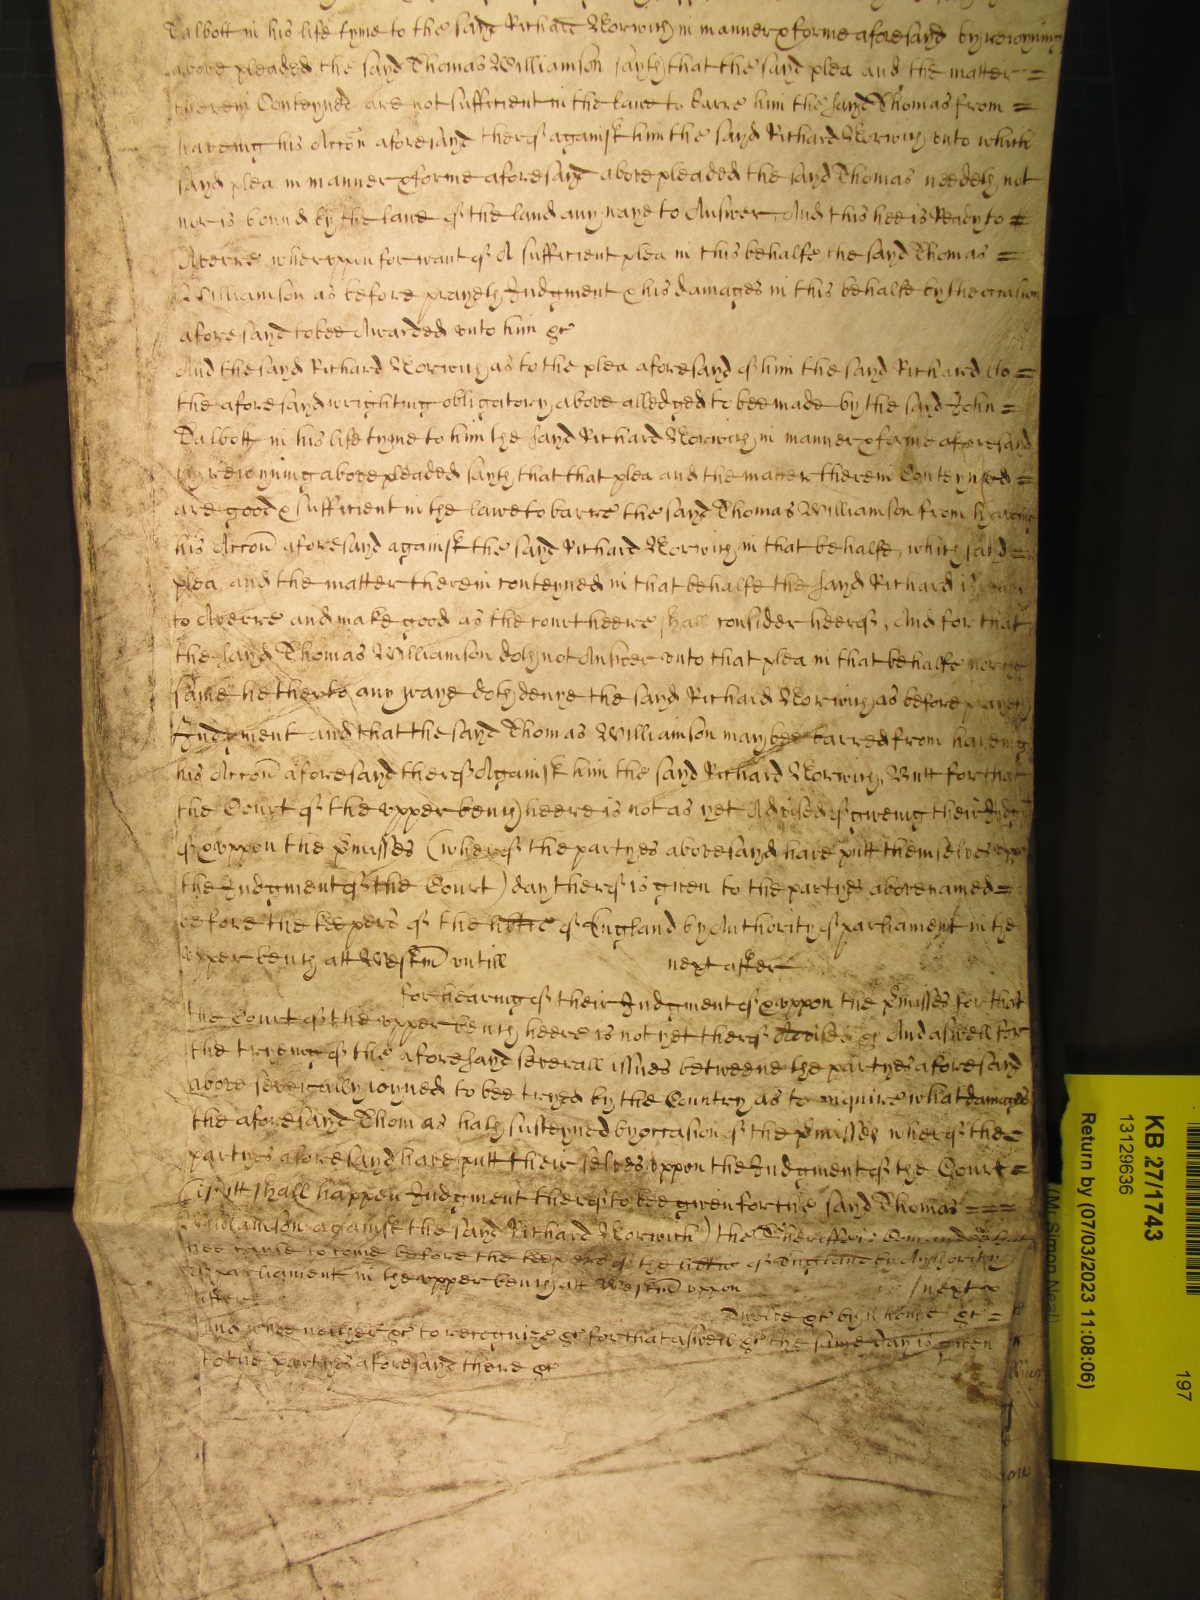 Talbott in his life tyme to the sayd Richard Norwich in manner & forme aforesayd by reioyning
above pleaded the sayd Thomas Williamson sayth that the sayd plea and the matter =
therein Conteyned are not sufficient in the lawe to barre him the sayd Thomas from =
haveing his Accon aforesayd therof against him the sayd Richard Norwich unto which
sayd plea in manner & forme aforesayd above pleaded the sayd Thomas needeth not
nor is bound by the lawe of the land any waye to Answer, And this hee is Ready to =
Averre wheruppon for want of A sufficient plea in this behalfe the sayd Thomas =
Williamson as before prayeth Judgment & his damages in this behalfe by the occasion
aforesayd to bee Awarded unto him &c
And the sayd Richard Norwich as to the plea aforesayd of him the sayd Richard to =
the aforesayd wrighting obligatory above alledged to bee made by the said John =
Talbott in his life tyme to him the sayd Richard Norwich in manner & forme aforesayd
by reioyning above pleaded sayth that that plea and the matter therein Conteyned =
are good & sufficient in the lawe to barre the sayd Thomas Williamson from haveing
his Accon aforesayd against the sayd Richard Norwich in that behalfe, which said =
plea and the matter therein conteyned in that behalfe the sayd Richard is ready
to Averre and make good as the court heere shall consider heerof, And for that
the sayd Thomas Williamson doth not Answer unto that plea in that behalfe nor the
same hetherto any waye doth denye the sayd Richard Norwich as before prayeth
Judgment and that the sayd Thomas Williamson may bee barred from haveing
his Accon aforesayd therof Against him the sayd Richard Norwich, Butt for that
the Court of the upper bench heere is not as yet Advised of giveing their Judgt
of & uppon the p'misses (wherof the partyes abovesayd have putt themselves uppon
the Judgment of the Court) day therof is given to the partyes abovenamed =
before the keepers of the lib'tie of England by Authority of parliament in the
upper bench att Westm untill next after
for hearing of their Judgment of & uppon the p'misses for that
the Court of the upper bench heere is not yet therof Advised &c And aswell for
the tryeing of the aforesayd severall issues betweene the partyes aforesayd
above severally ioyned to bee tryed by the Country as to inquire what damages
the aforesayd Thomas hath susteyned by occasion of the p'misses wherof the =
partyes aforesayd have putt their selves uppon the Judgment of the Court =
(if itt shall happen Judgment therof to bee given for the sayd Thomas ===
Williamson against the sayd Richard Norwich) the Sheriffe is Comanded that
hee cause to come before the keepers of the lib'tie of England by Authority
of parliament in the upper bench att Westm uppon next
after
Twelve &c by whome &c =
And whoe neither &c to recognize &c for that aswell &c the same day is given
to the partyes aforesayd there &c
KB 27/1743
13129636
Return by (07/03/2023 11:08:06)
197